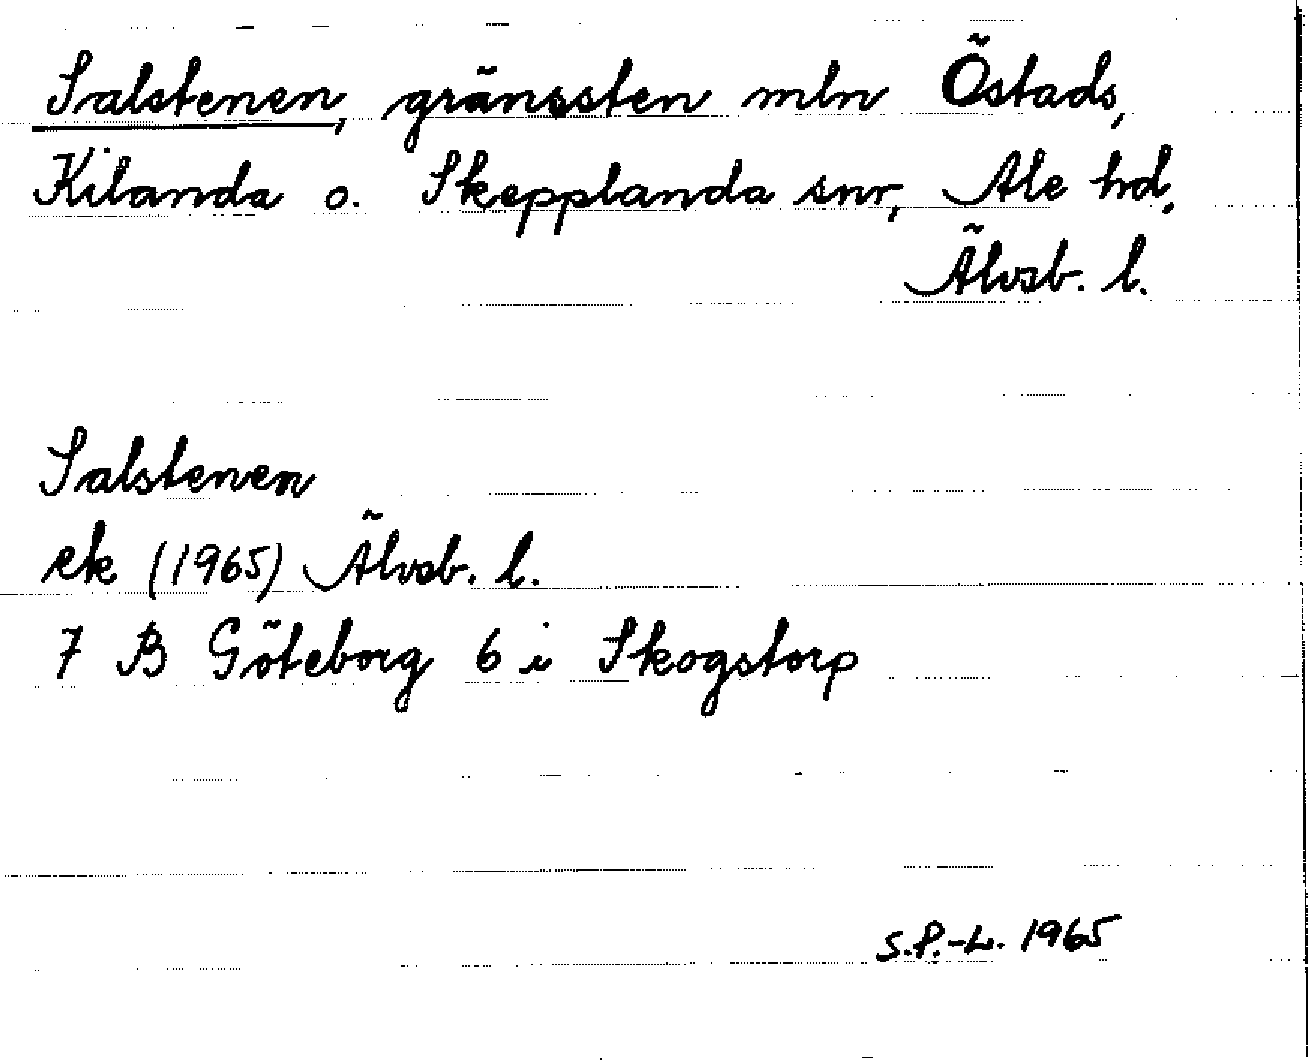 Salstenen, gränssten mln Östads,
Kilanda o. Skepplanda snr, Ale hd,
Älvsb. l.
Salstenen
ek (1965) Älvsb. l.
7 B Göteborg 6 i Skogstorp
S.P.-L. 1965